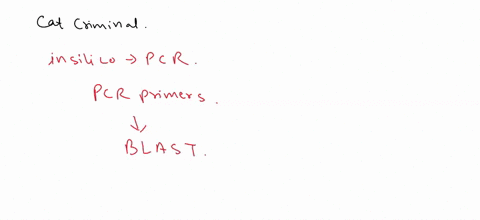 Cat Criminal.
insilico → PCR.
PCR primers.
↓
BLAST.